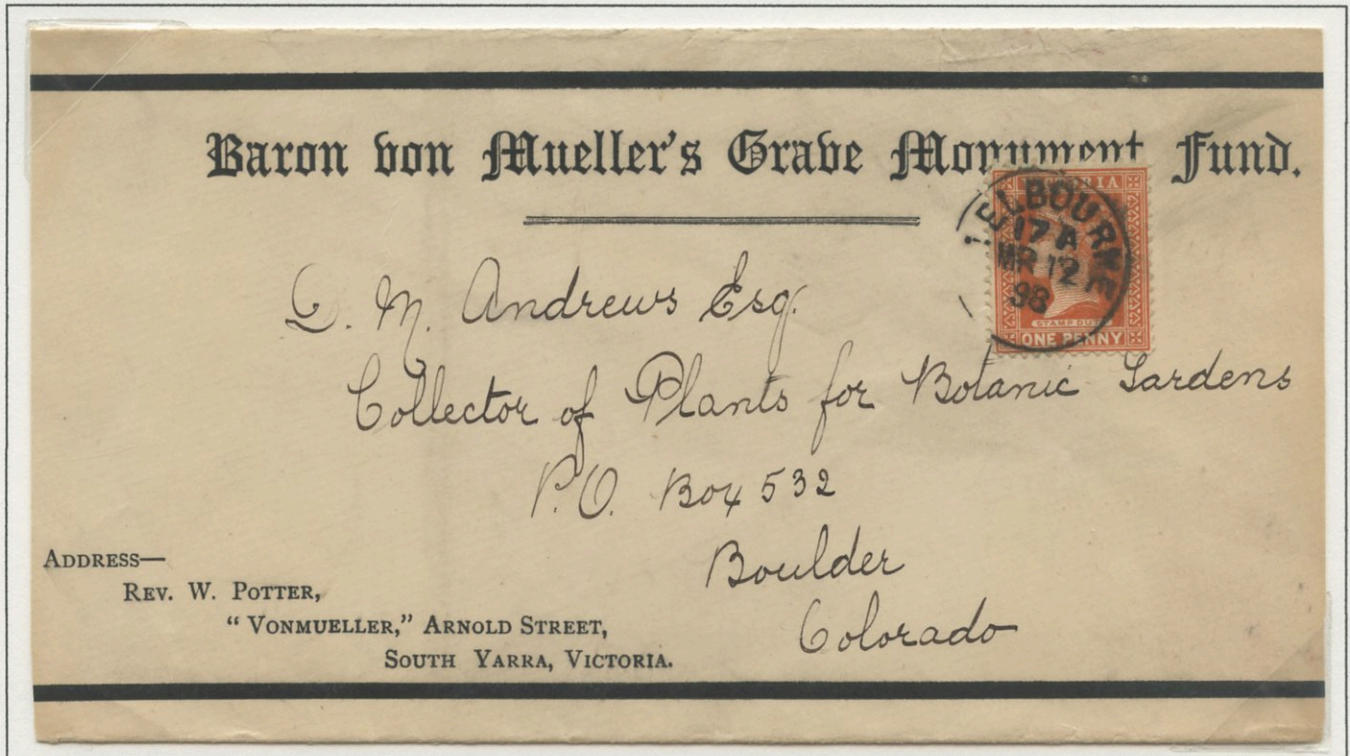 Baron von Mueller's Grave Monument Fund.
VICTORIA
MELBOURNE
17 A
MR 12
98
STAMP DUTY
ONE PENNY
D. M. Andrews Esq.
Collector of Plants for Botanic Gardens
P.O. Box 532
Boulder
Colorado
ADDRESS—
REV. W. POTTER,
"VONMUELLER," ARNOLD STREET,
SOUTH YARRA, VICTORIA.